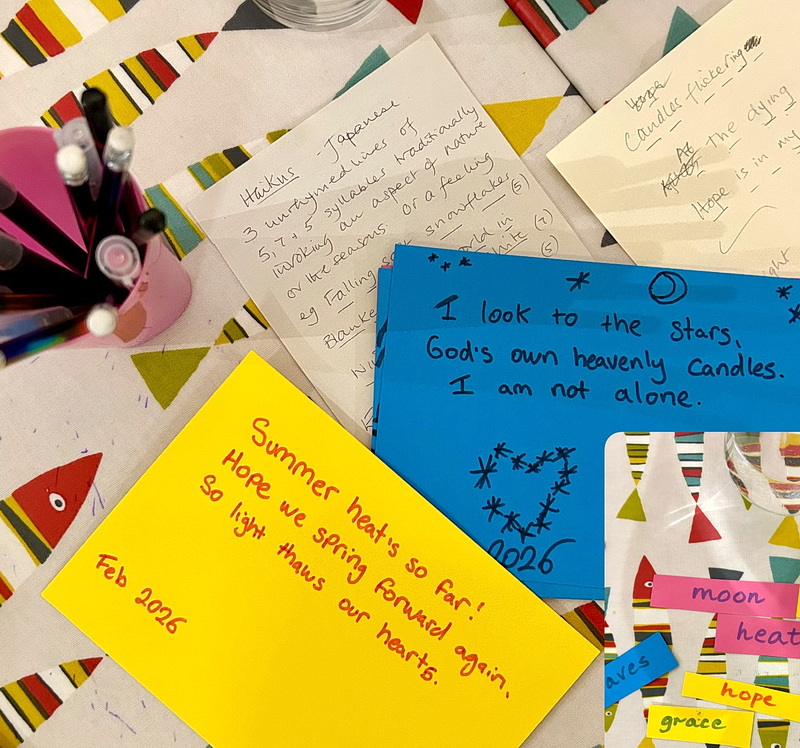 Haikus - Japanese
3 unrhymed lines of
5, 7 + 5 syllables traditionally
invoking an aspect of nature
or the seasons. Or a feeling
eg Falling soft snowflakes (5)
Blanke world in (7)
white (5)
Hope
Candles flickering
At the dying
Hope is in my
I look to the stars,
God's own heavenly candles.
I am not alone.
2026
Summer heat is so far!
Hope we spring forward again,
So light thaws our hearts.
Feb 2026
moon
heat
aves
hope
grace